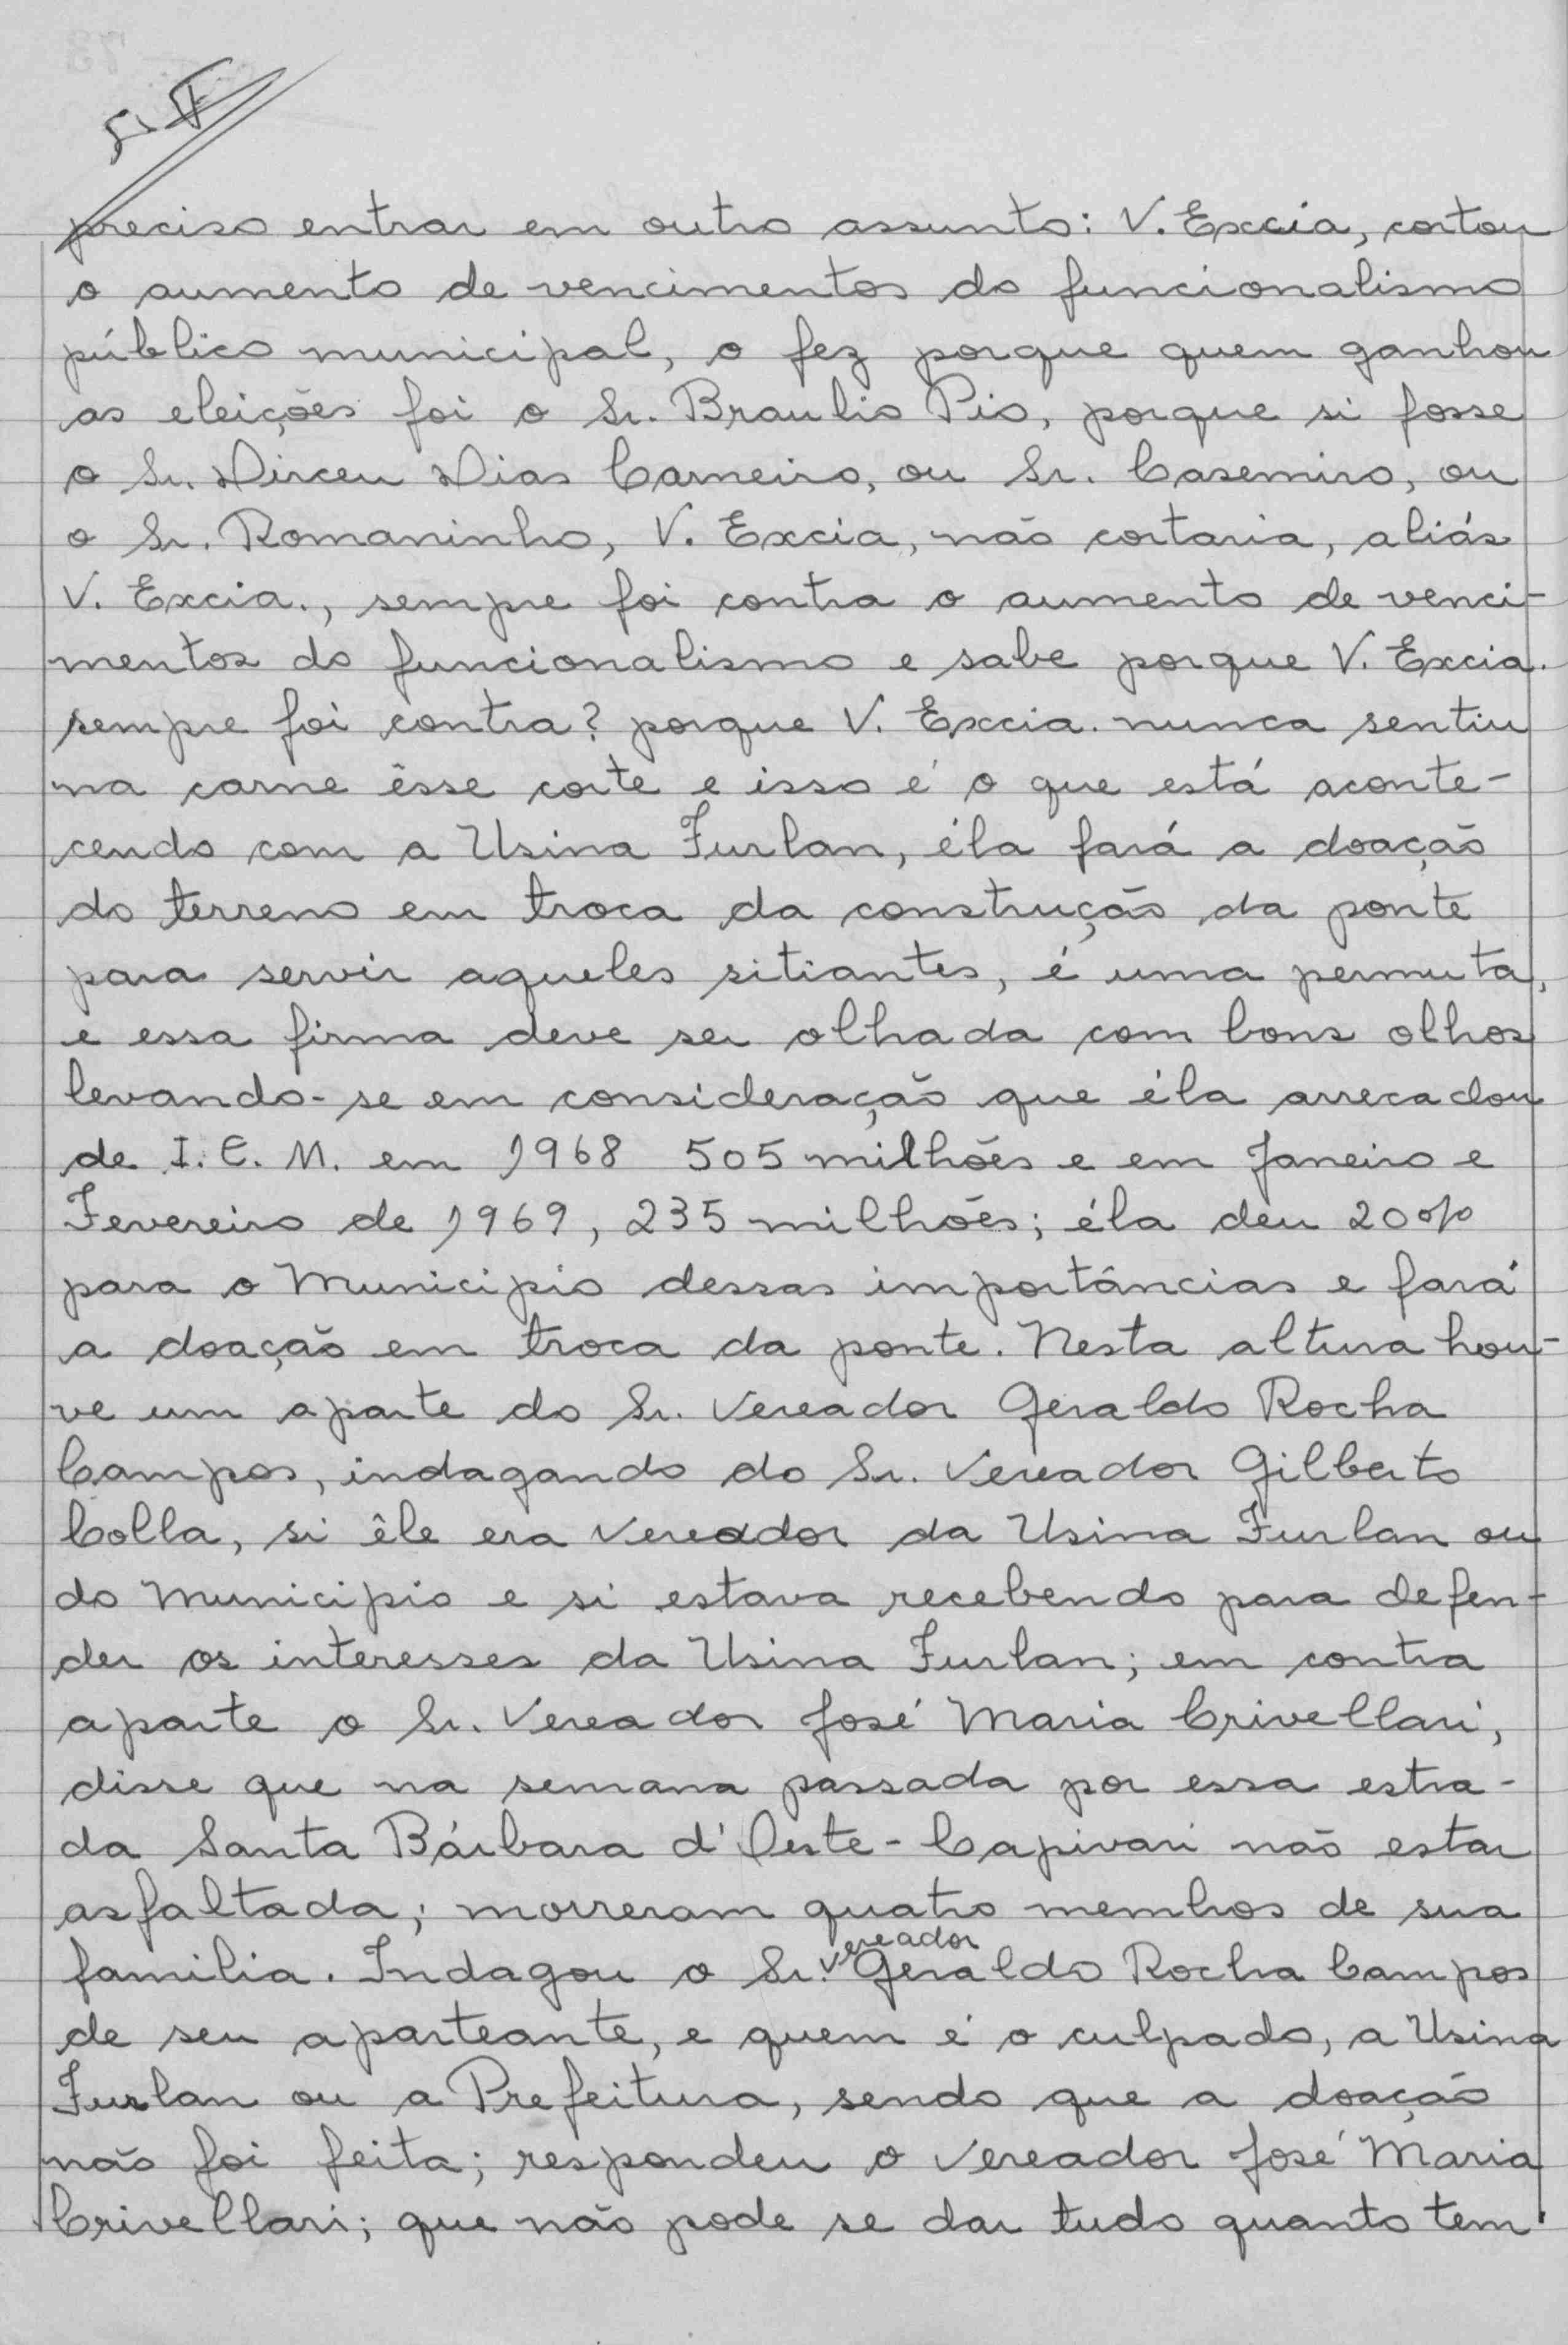 preciso entrar em outro assunto: V. Excia, cortou
o aumento de vencimentos do funcionalismo
público municipal, o fez porque quem ganhou
as eleições foi o Sr. Braulio Pio, porque si fosse
o Sr. Dirceu Dias Carneiro, ou Sr. Casemiro, ou
o Sr. Romaninho, V. Excia, não cortaria, aliás
V. Excia., sempre foi contra o aumento de venci-
mentos do funcionalismo e sabe porque V. Excia.
sempre foi contra? porque V. Excia. nunca sentiu
na carne êsse corte e isso é o que está aconte-
cendo com a Usina Furlan, éla fará a doação
do terreno em troca da construção da ponte
para servir aqueles sitiantes, é uma permuta,
e essa firma deve ser olhada com bons olhos
levando-se em consideração que éla arrecadou
de I.C.M. em 1968 505 milhões e em Janeiro e
Fevereiro de 1969, 235 milhões; éla deu 20%
para o Municipio dessas importâncias e fará
a doação em troca da ponte. Nesta altura hou-
ve um aparte do Sr. Vereador Geraldo Rocha
Campos, indagando do Sr. Vereador Gilberto
Colla, si êle era Vereador da Usina Furlan ou
do Municipio e si estava recebendo para defen-
der os interesses da Usina Furlan; em contra
aparte o Sr. Vereador José Maria Crivellari,
disse que na semana passada por essa estra-
da Santa Bárbara d'Oeste-Capivari não estar
asfaltada; morreram quatro membros de sua
familia. Indagou o Sr. vereador Geraldo Rocha Campos
de seu aparteante, e quem é o culpado, a Usina
Furlan ou a Prefeitura, sendo que a doação
não foi feita; respondeu o Vereador José Maria
Crivellari; que não pode se dar tudo quanto tem